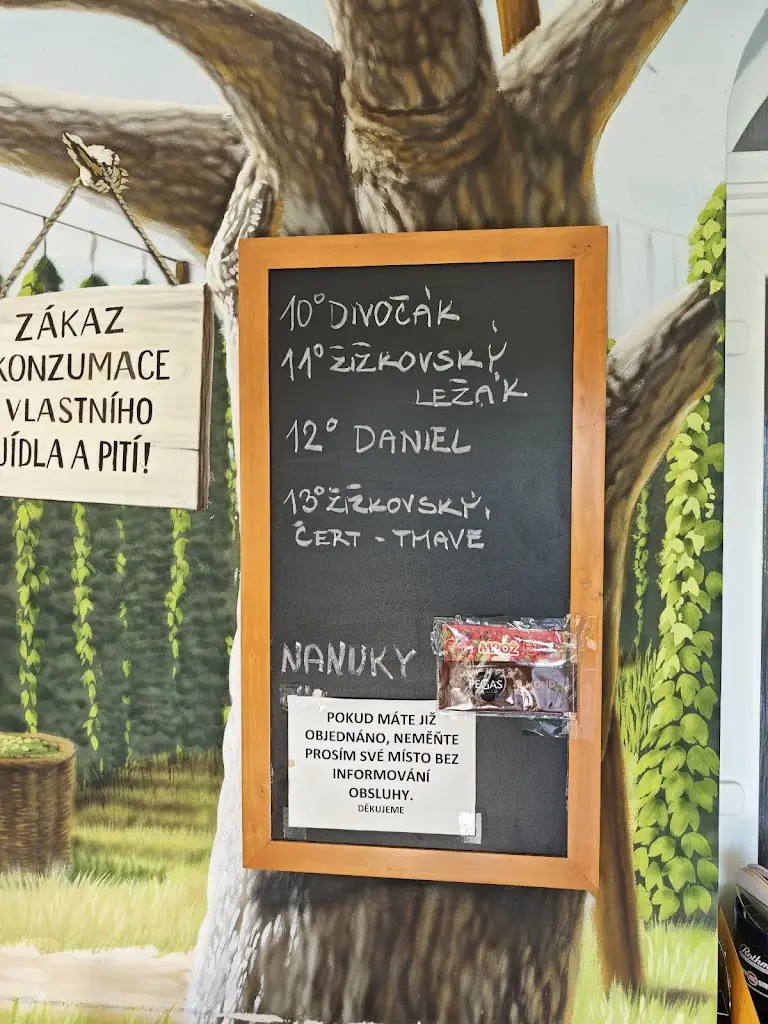 ZÁKAZ
KONZUMACE
VLASTNÍHO
JÍDLA A PITÍ!
10° DIVOČÁK
11° ŽIŽKOVSKÝ
LEŽÁK
12° DANIEL
13° ŽIŽKOVSKÝ
ČERT - TMAVÉ
NANUKY
MRÓZ
PEGAS ALMOND
POKUD MÁTE JIŽ
OBJEDNÁNO, NEMĚŇTE
PROSÍM SVÉ MÍSTO BEZ
INFORMOVÁNÍ
OBSLUHY.
DĚKUJEME